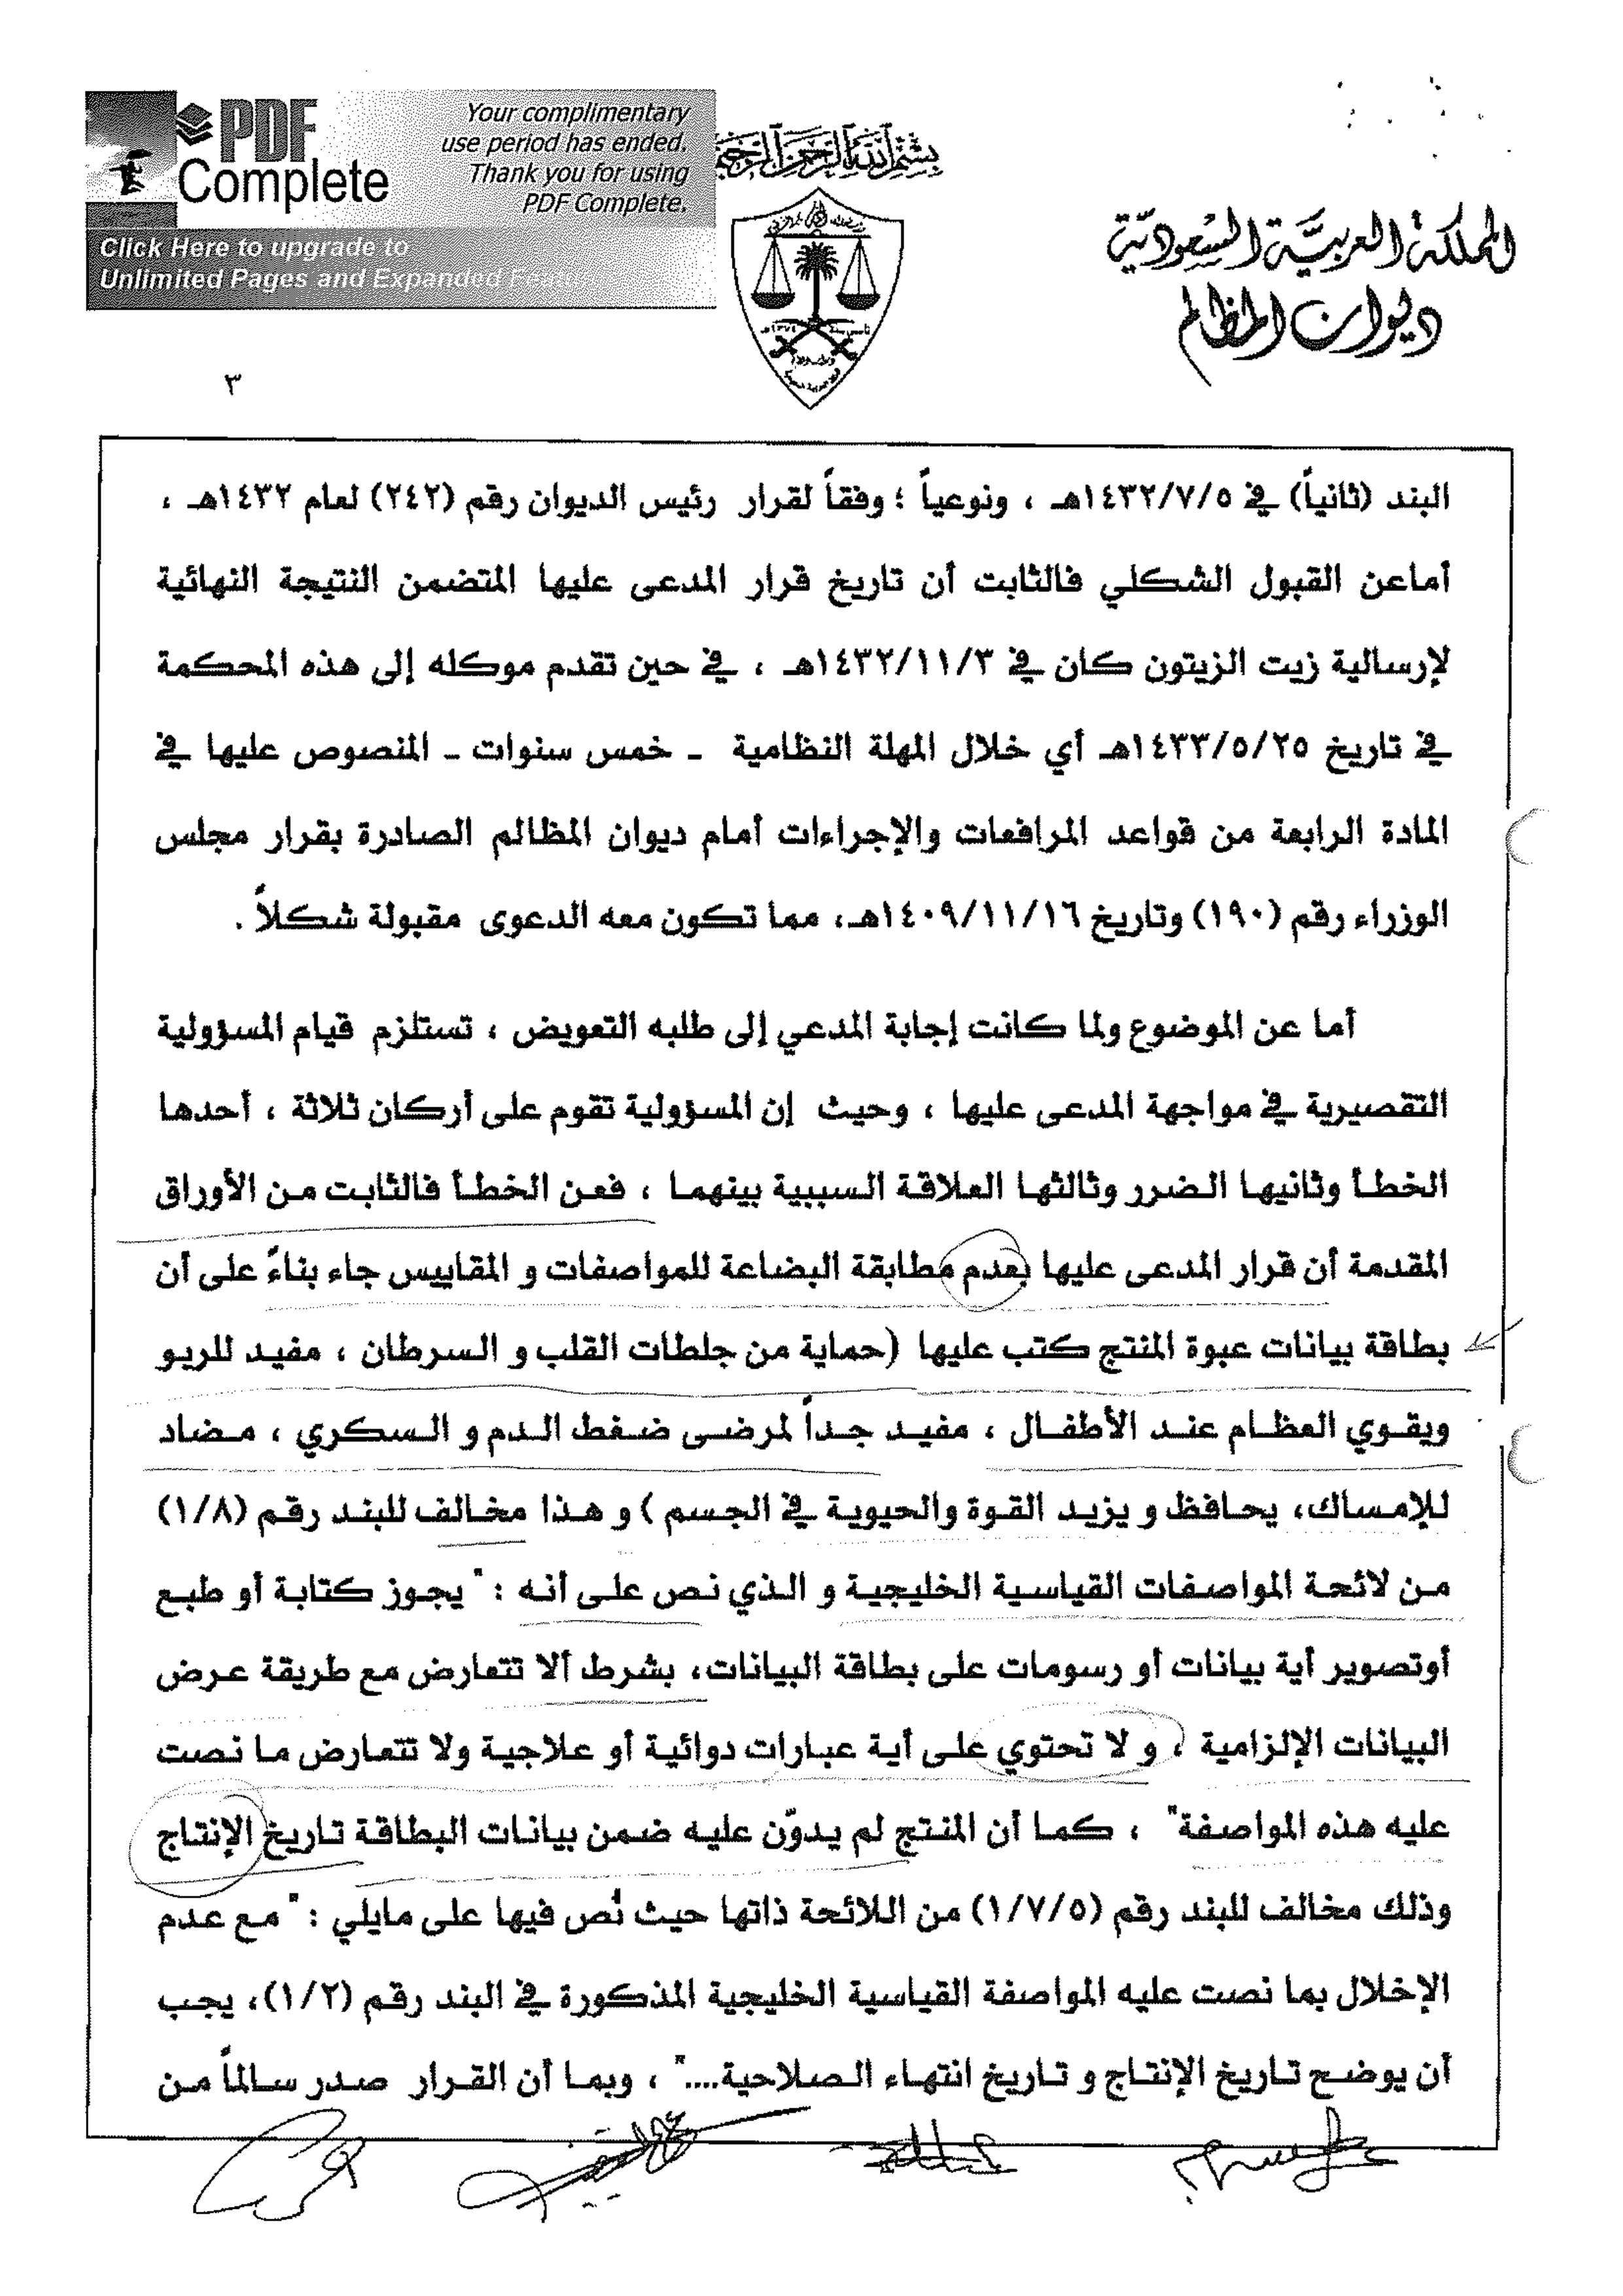 PDF Complete
Your complimentary
use period has ended.
Thank you for using
PDF Complete.
Click Here to upgrade to
Unlimited Pages and Expanded Features
بسم الله الرحمن الرحيم
المملكة العربية السعودية
ديوان المظالم
٣
البند (ثانياً) في ١٤٣٢/٧/٥هـ ، ونوعياً ؛ وفقاً لقرار رئيس الديوان رقم (٢٤٢) لعام ١٤٣٢هـ ،
أماعن القبول الشكلي فالثابت أن تاريخ قرار المدعى عليها المتضمن النتيجة النهائية
لإرسالية زيت الزيتون كان في ١٤٣٢/١١/٣هـ ، في حين تقدم موكله إلى هذه المحكمة
في تاريخ ١٤٣٣/٥/٢٥هـ أي خلال المهلة النظامية - خمس سنوات - المنصوص عليها في
المادة الرابعة من قواعد المرافعات والإجراءات أمام ديوان المظالم الصادرة بقرار مجلس
الوزراء رقم (١٩٠) وتاريخ ١٤٠٩/١١/١٦هـ، مما تكون معه الدعوى مقبولة شكلاً .
أما عن الموضوع ولما كانت إجابة المدعي إلى طلبه التعويض ، تستلزم قيام المسؤولية
التقصيرية في مواجهة المدعى عليها ، وحيث إن المسؤولية تقوم على أركان ثلاثة ، أحدها
الخطأ وثانيها الضرر وثالثها العلاقة السببية بينهما ، فعن الخطأ فالثابت من الأوراق
المقدمة أن قرار المدعى عليها بعدم مطابقة البضاعة للمواصفات و المقاييس جاء بناءً على أن
بطاقة بيانات عبوة المنتج كتب عليها (حماية من جلطات القلب و السرطان ، مفيد للربو
ويقوي العظام عند الأطفال ، مفيد جداً لمرضى ضغط الدم و السكري ، مضاد
للإمساك، يحافظ و يزيد القوة والحيوية في الجسم ) و هذا مخالف للبند رقم (١/٨)
من لائحة المواصفات القياسية الخليجية و الذي نص على أنه : " يجوز كتابة أو طبع
أوتصوير أية بيانات أو رسومات على بطاقة البيانات، بشرط ألا تتعارض مع طريقة عرض
البيانات الإلزامية ، و لا تحتوي على أية عبارات دوائية أو علاجية ولا تتعارض ما نصت
عليه هذه المواصفة" ، كما أن المنتج لم يدوّن عليه ضمن بيانات البطاقة تاريخ الإنتاج
وذلك مخالف للبند رقم (١/٧/٥) من اللائحة ذاتها حيث نُص فيها على مايلي : " مع عدم
الإخلال بما نصت عليه المواصفة القياسية الخليجية المذكورة في البند رقم (١/٢)، يجب
أن يوضح تاريخ الإنتاج و تاريخ انتهاء الصلاحية...." ، وبما أن القرار صدر سالماً من